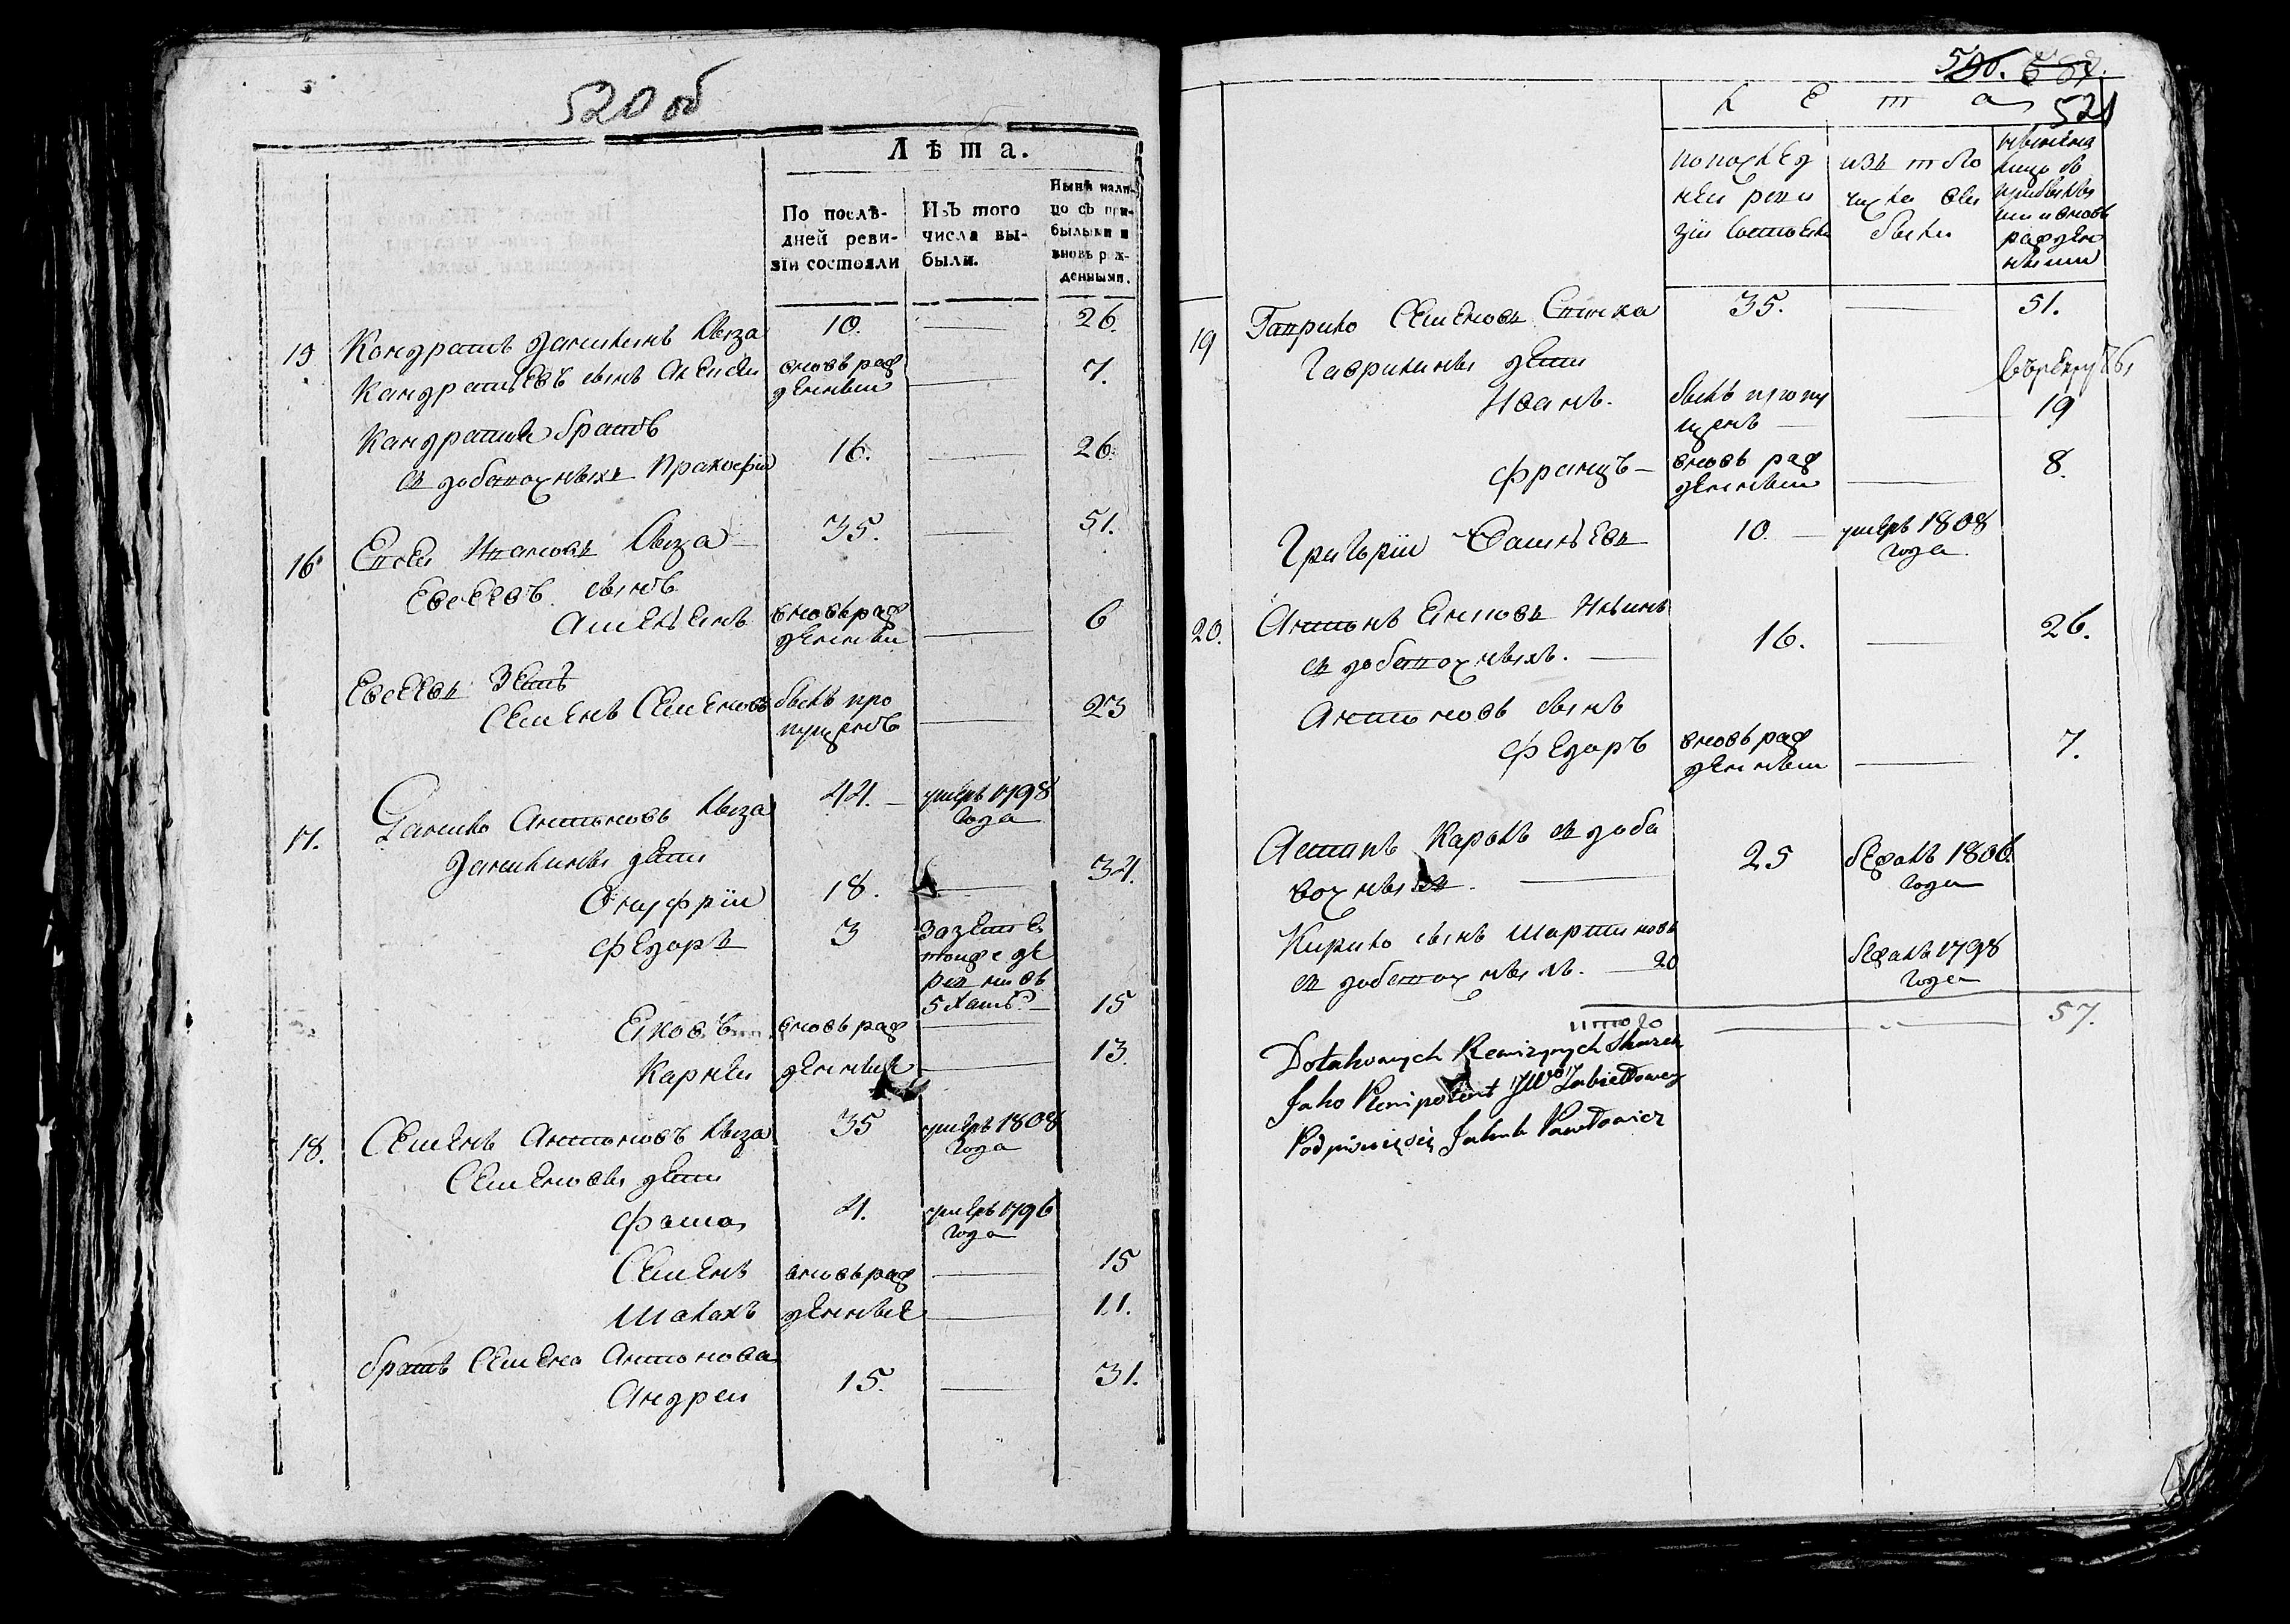 520 об
Лѣта.
По послѣ-
дней реви-
зіи состояли
Изъ того
числа вы-
были.
Нынѣ нали-
цо съ при-
былыми и
вновь рож-
денными.
15 Кондратъ Данилинъ Кыза 10. — 26.
Кандратьевъ сынъ Алексей вновь рож
денный — 7.
Кандратия братъ
из добавочныхъ Пракофий 16. — 26.
16 Евсей Ивановъ Кыза — 35. — 51.
Евсеевъ сынъ
Амельянъ вновь рож
денный — 6
Евсеевъ Зять
Семенъ Семеновъ былъ про
пущенъ — 23
17. Данило Антоновъ Кыза 44. — умеръ 1798
года
Данилины дети
Онуфрий 18. — 34.
Федоръ 3
тойже де
ревни въ
5 —
Яковъ вновь рож — 15
Карней денные — 13.
18. Семенъ Антоновъ Кыза 35 умеръ 1808
года
Семеновы дети
Фома 4. умеръ 1796
года
Семенъ вновь рож — 15
Малахъ денные — 11.
братъ Семена Антонова
Андрей 15. — 31.
521
Лета
по послед
ней реви
зіи состояли
изъ того
числа вы
были
ныне на
лицо съ
прибылы
ми и вновь
рожден
ными
19 Гаврило Семеновъ 35. — 51.
Гаврилины дети
Иванъ. былъ пропу
щенъ — 19
Францъ — вновь рож
денный — 8.
Григорий 10. — умеръ 1808
года
20. Антонъ Ильинъ
из добавочныхъ. — 16. — 26.
Антоновъ сынъ
Федоръ вновь рож
денный — 7.
Астапъ Кароль из доба
вочныхъ. — 25 бежалъ 1806
года
Кирило сынъ Мартиновъ
из добавочныхъ. — 20 бежалъ 1798
года
итого — 57.
Jako Plenipotent
Podpisuię się Jakub Pawłowicz